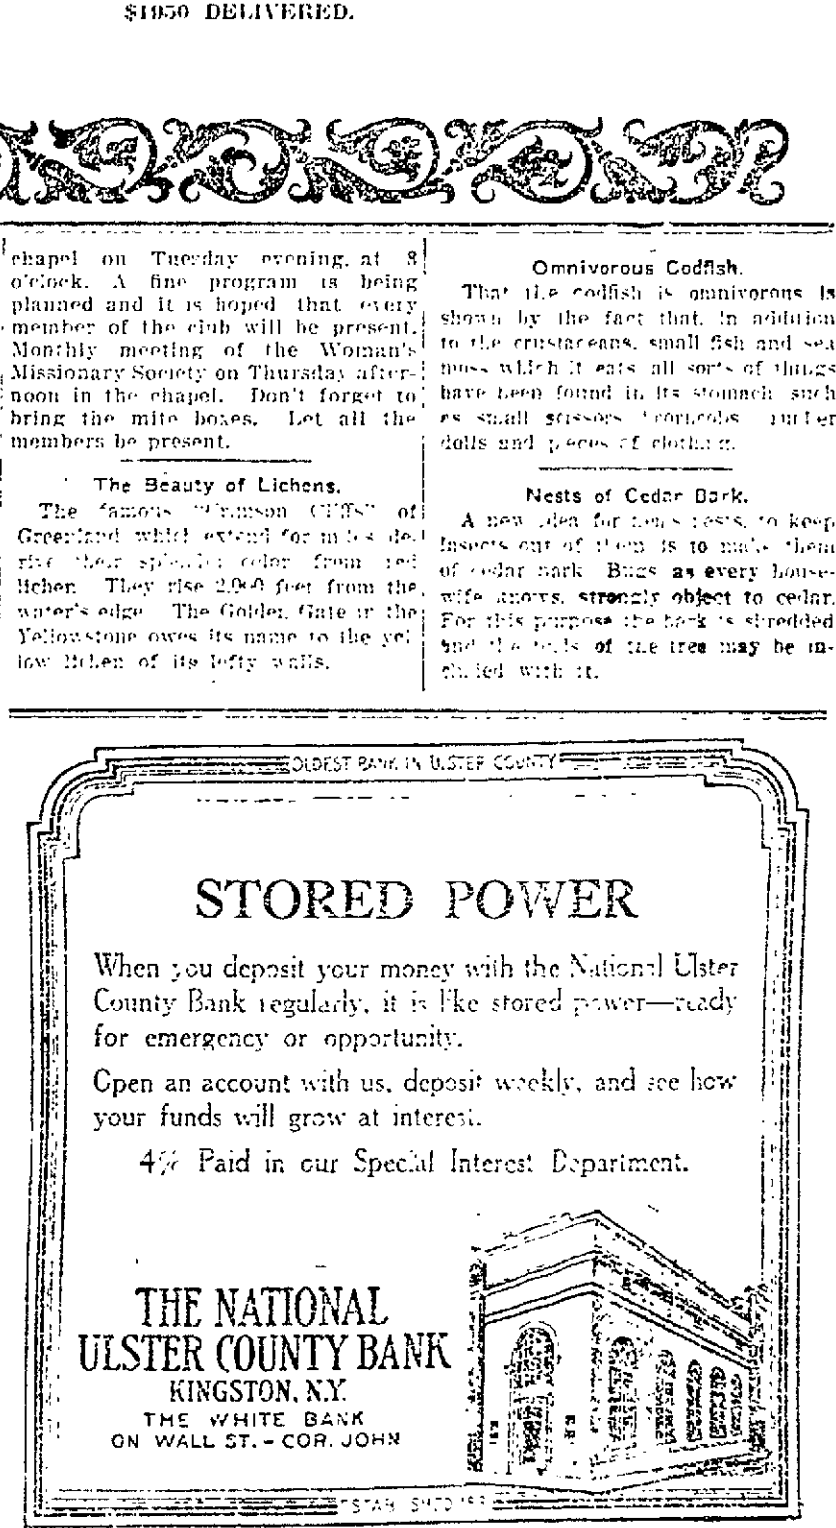 $1950 DELIVERED.
chapel on Tuesday evening, at 8
o'clock. A fine program is being
planned and it is hoped that every
member of the club will be present.
Monthly meeting of the Woman's
Missionary Society on Thursday after-
noon in the chapel. Don't forget to
bring the mite boxes. Let all the
members be present.
The Beauty of Lichens.
The famous "Crimson Cliffs" of
Greenland which extend for miles de-
rive their splendid color from red
lichen. They rise 2,000 feet from the
water's edge. The Golden Gate in the
Yellowstone owes its name to the yel-
low lichen of its lofty walls.
Omnivorous Codfish.
That the codfish is omnivorous is
shown by the fact that, in addition
to the crustaceans, small fish and sea
moss which it eats, all sorts of things
have been found in its stomach such
as small scissors, corncobs, rubber
dolls and pieces of clothing.
Nests of Cedar Bark.
A new idea for hen's nests, to keep
insects out of them is to make them
of cedar bark. Bugs as every house-
wife knows, strongly object to cedar.
For this purpose the bark is shredded
and the of the tree may be in-
cluded with it.
OLDEST BANK IN ULSTER COUNTY
STORED POWER
When you deposit your money with the National Ulster
County Bank regularly, it is like stored power—ready
for emergency or opportunity.
Open an account with us, deposit weekly, and see how
your funds will grow at interest.
4% Paid in our Special Interest Department.
THE NATIONAL
ULSTER COUNTY BANK
KINGSTON, N.Y.
THE WHITE BANK
ON WALL ST. - COR. JOHN
ESTABLISHED